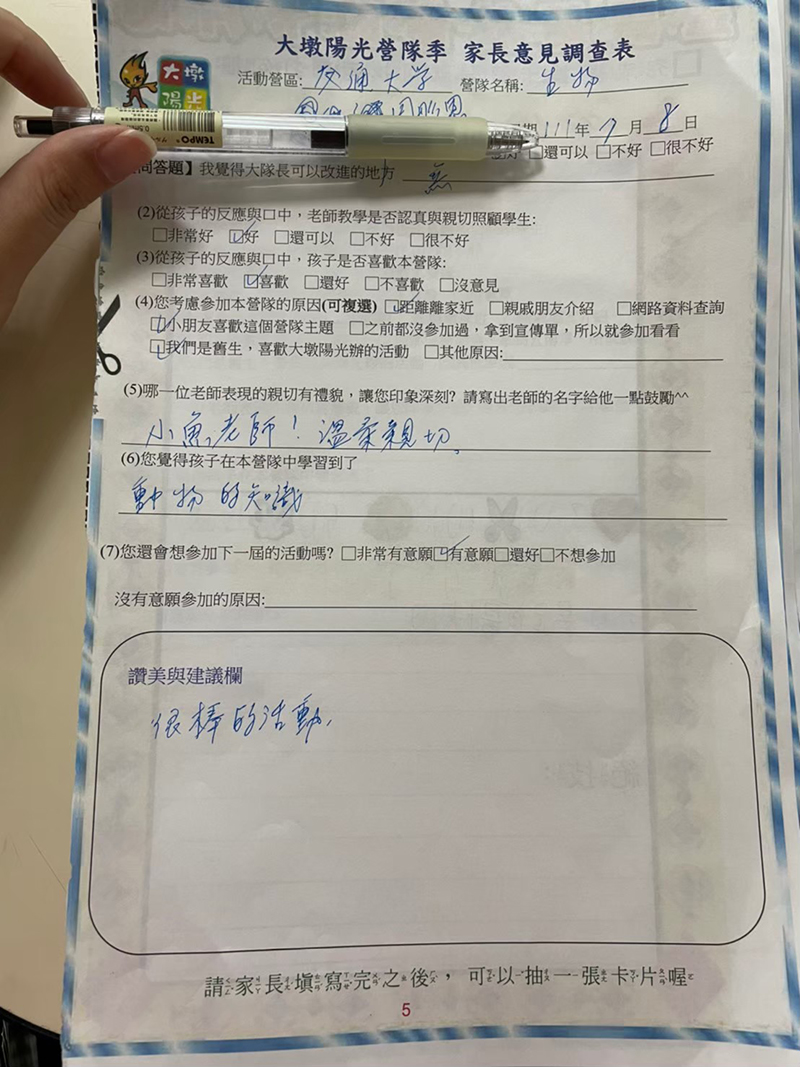 大墩陽光營隊季 家長意見調查表
大墩
陽光
活動營區: 交通大学 營隊名稱: 生物
期 111 年 7 月 8 日
□還可以 □不好 □很不好
TEMPO
問答題】我覺得大隊長可以改進的地方 無
(2)從孩子的反應與口中，老師教學是否認真與親切照顧學生:
□非常好 ☑好 □還可以 □不好 □很不好
(3)從孩子的反應與口中，孩子是否喜歡本營隊:
□非常喜歡 ☑喜歡 □還好 □不喜歡 □沒意見
(4)您考慮參加本營隊的原因(可複選) ☑距離離家近 □親戚朋友介紹 □網路資料查詢
☑小朋友喜歡這個營隊主題 □之前都沒參加過，拿到宣傳單，所以就參加看看
☑我們是舊生，喜歡大墩陽光辦的活動 □其他原因:
(5)哪一位老師表現的親切有禮貌，讓您印象深刻? 請寫出老師的名字給他一點鼓勵^^
小魚老師！溫柔親切。
(6)您覺得孩子在本營隊中學習到了
動物的知識
(7)您還會想參加下一屆的活動嗎? □非常有意願☑有意願□還好□不想參加
沒有意願參加的原因:
讚美與建議欄
很棒的活動.
請家長填寫完之後，可以抽一張卡片喔
5